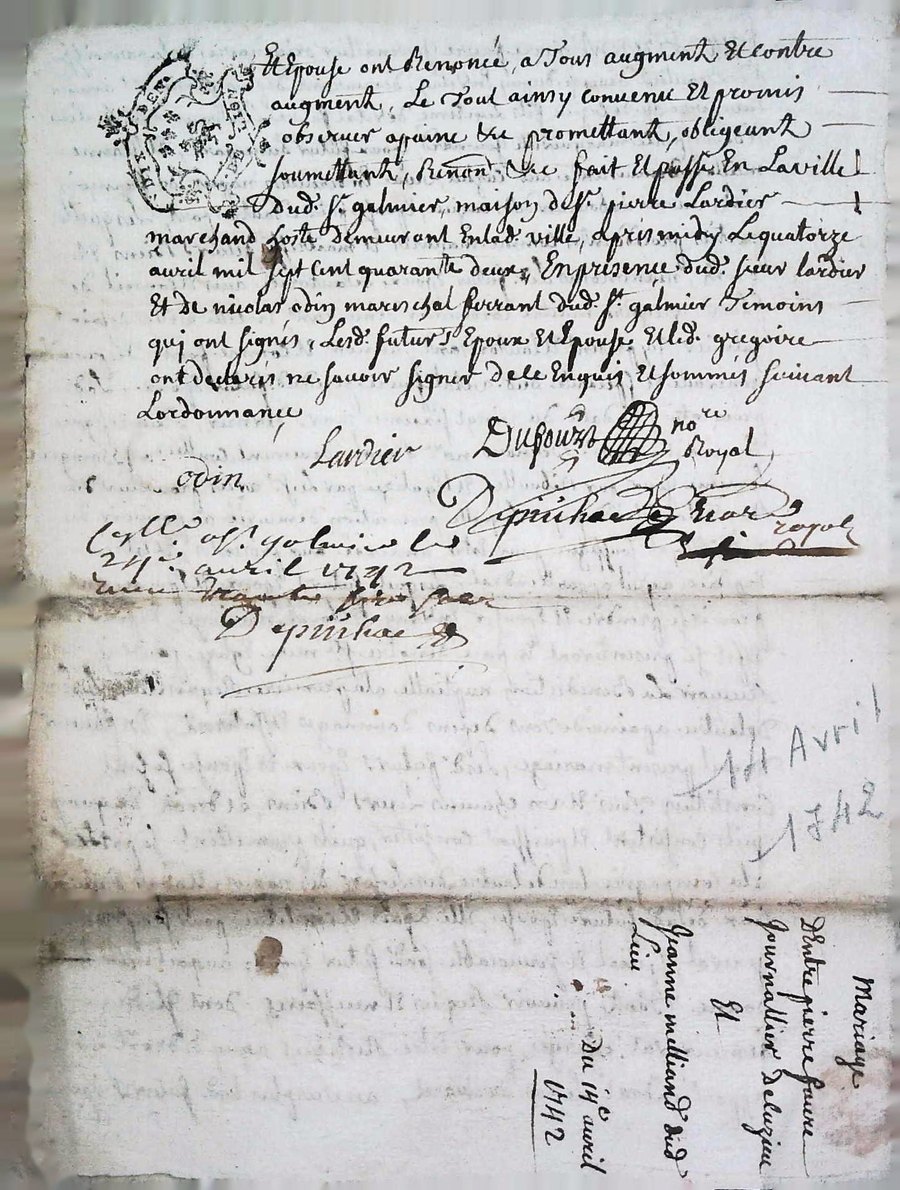 Et Epouse ont Renoncé, a Tous augment Et contre
augment, Le Tout ainsy convenu Et promis
observer apaine &c promettant, obligeant
soumettant, Renonct &c fait Et passé En La ville
Dud. St galmier, maison de Sr. pierre Lardier
marchand hoste demeurant En lad. ville, apres midy Le quatorze
avril mil sept cent quarante deux, En presence dud. sieur lardier
Et de nicolas odin mareschal ferrant dud. St galmier Temoins
qui ont signés, Lesd. futurs Epoux Et Epouse Et led. gregoire
ont declarés ne savoir signer de ce Enquis Et sommés suivant
Lordonnance
Lardier
nore
Royal
odin
Depuihac
royal
avril 1742
Depuihac
14 Avril
1742
Mariage
D'Entre pierre faure
Journallier De
Et
Jeanne milliand dud
Lieu
Du 14e avril
1742